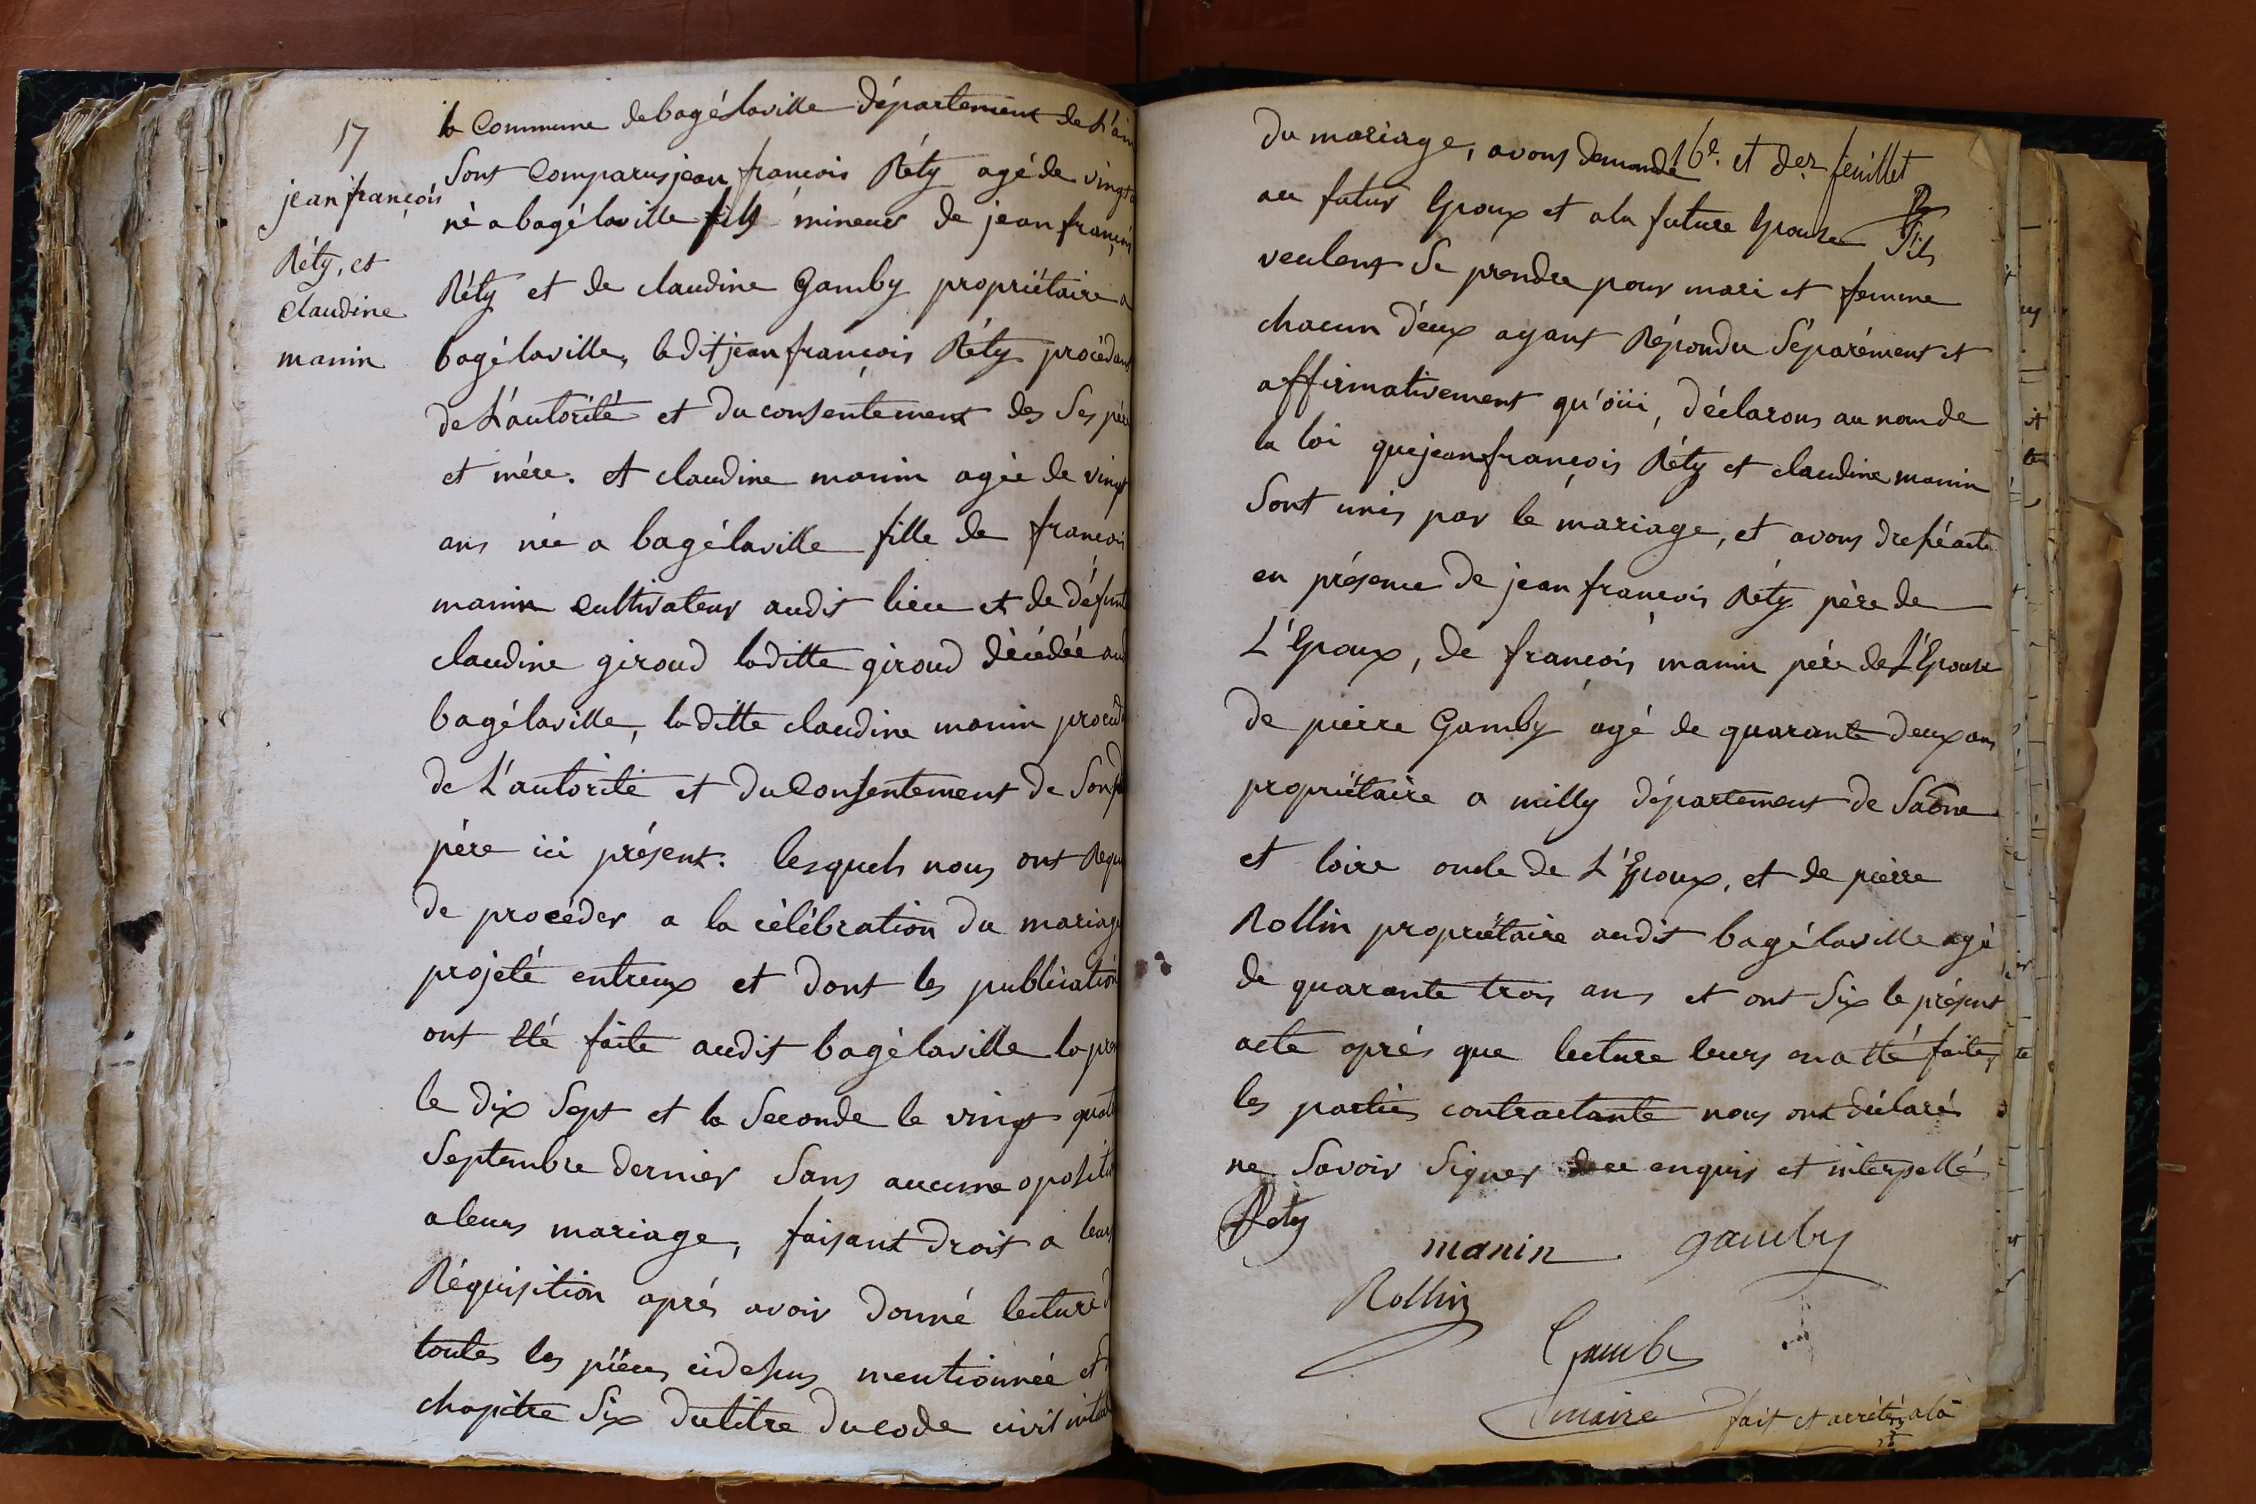 17
jean françois
Réty, et
claudine
manin
la Commune de bagé laville département de L'ain
Sont Comparus jean françois Réty agé de vingt
né a bagé laville fils mineur de jean françois
Réty et de claudine Gamby propriétaire a
bagé laville, ledit jean françois Réty procédant
de L'autorité et du consentement des Ses père
et mére. et claudine manin agée de vingt
ans née a bagé laville fille de françois
manin cultivateur audit lieu et de défunte
claudine giroud laditte giroud décédée aud
bagé laville, laditte claudine manin procéd
de L'autorité et du Consentement de Son
père ici présent. lesquels nous ont Requ
de procéder a la célébration du mariage
projeté entreux et dont les publication
ont été faite audit bagé laville la pre
le dix Sept et la Seconde le vingt quat
Septembre dernier Sans aucune opositi
a leurs mariage, faisant droit a leurs
Réquisition aprés avoir donné lecture d
toutes les piéces cidessus mentionnée et
chapitre Six du titre du code civil intit
16e. et der. feuillet
du mariage, avons demandé
au futur Epoux et a la future Epouse S'ils
veulent Se prendre pour mari et femme
chacun d'eux ayant Répondu Séparément et
affirmativement qu'oüi, déclarons au nom de
la loi que jean françois Réty et claudine manin
Sont unis par le mariage, et avons dressé acte
en présence de jean françois Réty père de
L'Epoux, de françois manin pére de L'Epouse
de pierre Gamby agé de quarante deux ans
propriétaire a milly département de Saône
et loire oncle de L'Epoux, et de pierre
Rollin propriétaire audit bagé laville agé
de quarante trois ans et ont Six le présent
acte aprés que lecture leurs en a été faite,
les parties contractante nous ont déclarés
ne Savoir Signer de ce enquis et interpellé
Réty
manin gamby
Rollin
Gamby
maire
fait et arrété a la